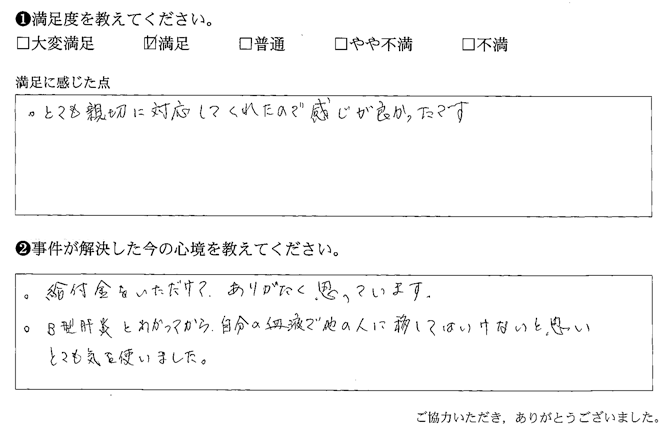 ❶満足度を教えてください。
□大変満足 ☑満足 □普通 □やや不満 □不満
満足に感じた点
。とても親切に対応してくれたので感じが良かったです
❷事件が解決した今の心境を教えてください。
。給付金をいただけて、ありがたく思っています。
。B型肝炎とわかってから、自分の血液で他の人に移してはいけないと思い
とても気を使いました。
ご協力いただき，ありがとうございました。